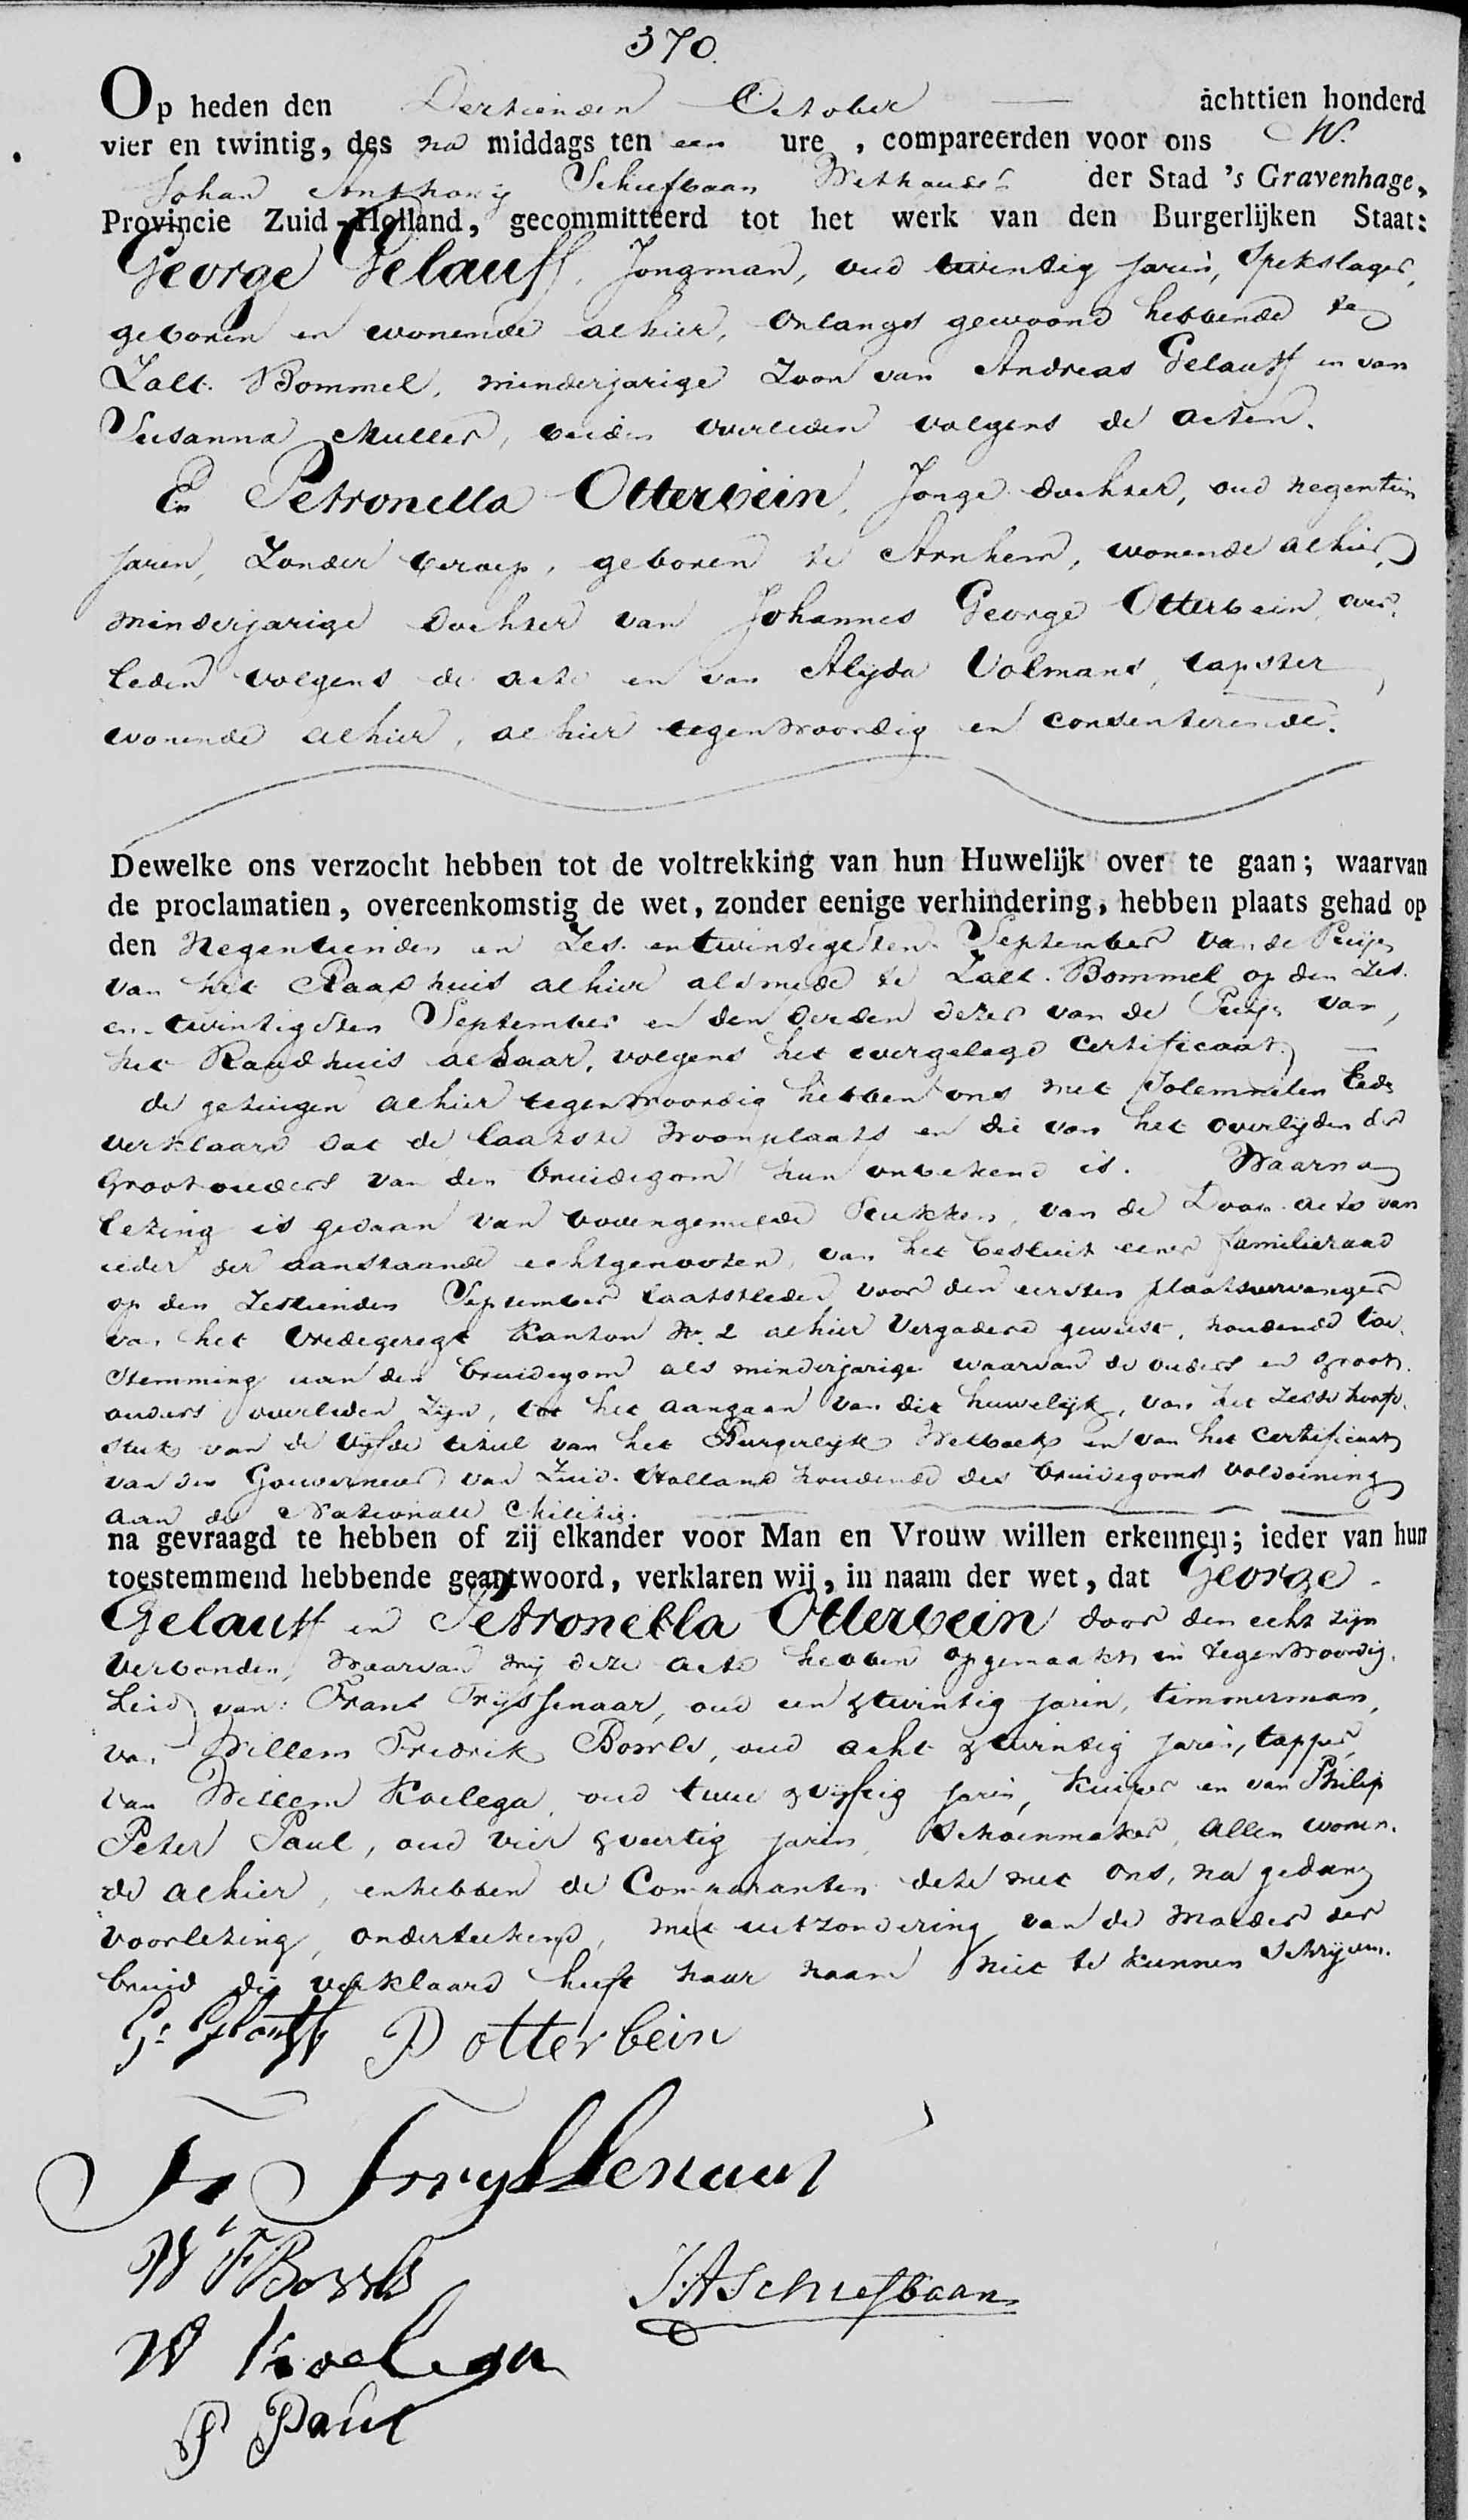 370.
Op heden den Dertienden October — achttien honderd
vier en twintig, des na middags ten een ure , compareerden voor ons Mr.
Johan Anthony Schiefbaan Wethouder der Stad 's Gravenhage,
Provincie Zuid-Holland, gecommitteerd tot het werk van den Burgerlijken Staat:
George Gelauff, Jongman, oud twintig jaren, Spekslager,
geboren en wonende alhier, onlangs gewoond hebbende te
Zalt-Bommel, minderjarige Zoon van Andreas Gelauff en van
Susanna Muller, beiden overleden volgens de acten.
En Petronella Otterbein, Jonge dochter, oud negentien
jaren, Zonder beroep, geboren te Arnhem, wonende alhier,
minderjarige dochter van Johannes George Otterbein, over-
leden volgens de acte en van Alyda Volmans, tapster,
wonende alhier, alhier tegenwoordig en consenterende.
Dewelke ons verzocht hebben tot de voltrekking van hun Huwelijk over te gaan; waarvan
de proclamatien, overeenkomstig de wet, zonder eenige verhindering, hebben plaats gehad op
den Negentienden en Zes-entwintigsten September van de Puije
van het Raadhuis alhier alsmede te Zalt-Bommel op den Zes-
en-twintigsten September en den derden dezer van de Puije van
het Raadhuis aldaar, volgens het overgelegd Certificaat. —
de getuigen alhier tegenwoordig hebben ons met Solemnelen Eede
verklaard dat de laatste woonplaats en die van het overlijden der
Grootouders van den bruidegom hun onbekend is. Waarna
lezing is gedaan van bovengemelde Stukken, van de Doop-acte van
ieder der aanstaande echtgenooten, van het besluit eener familieraad
op den Zestienden September laatstleden voor den eersten plaatsvervanger
van het Vredegeregt Kanton No. 2 alhier Vergaderd geweest, houdende toe-
stemming aan den bruidegom als minderjarige waarvan de ouders en groot-
ouders overleden zijn, tot het aangaan van dit huwelijk, van het zesde hoofd-
stuk van de vijfde titul van het Burgerlijk Wetboek en van het Certificaat
van den Gouverneur van Zuid-Holland houdende des bruidegoms voldoening
aan de Nationale Militie.
na gevraagd te hebben of zij elkander voor Man en Vrouw willen erkennen; ieder van hun
toestemmend hebbende geantwoord, verklaren wij, in naam der wet, dat George
Gelauff en Petronella Otterbein door den echt zijn
Verbonden, Waarvan wij deze acte hebben opgemaakt, in tegenwoordig-
heid van: Frans Tryssenaar, oud een & twintig jaren, timmerman,
van Willem Fredrik Bowls, oud acht & twintig jaren, tapper,
van Willem Koelega, oud twee & vijftig jaren, Kuiper en van Philip
Peter Paul, oud vier & veertig jaren, Schoenmaker, Allen wonen-
de alhier, en hebben de Comparanten deze met ons, na gedane
voorlezing, onderteekend, met uitzondering van de Moeder der
bruid die verklaard heeft haar naam niet te kunnen schrijven.
G: Gelauff P Otterbein
Fs Tryssenaar
W F Bowls
J:A Schiefbaan
W Koelega
P Paul